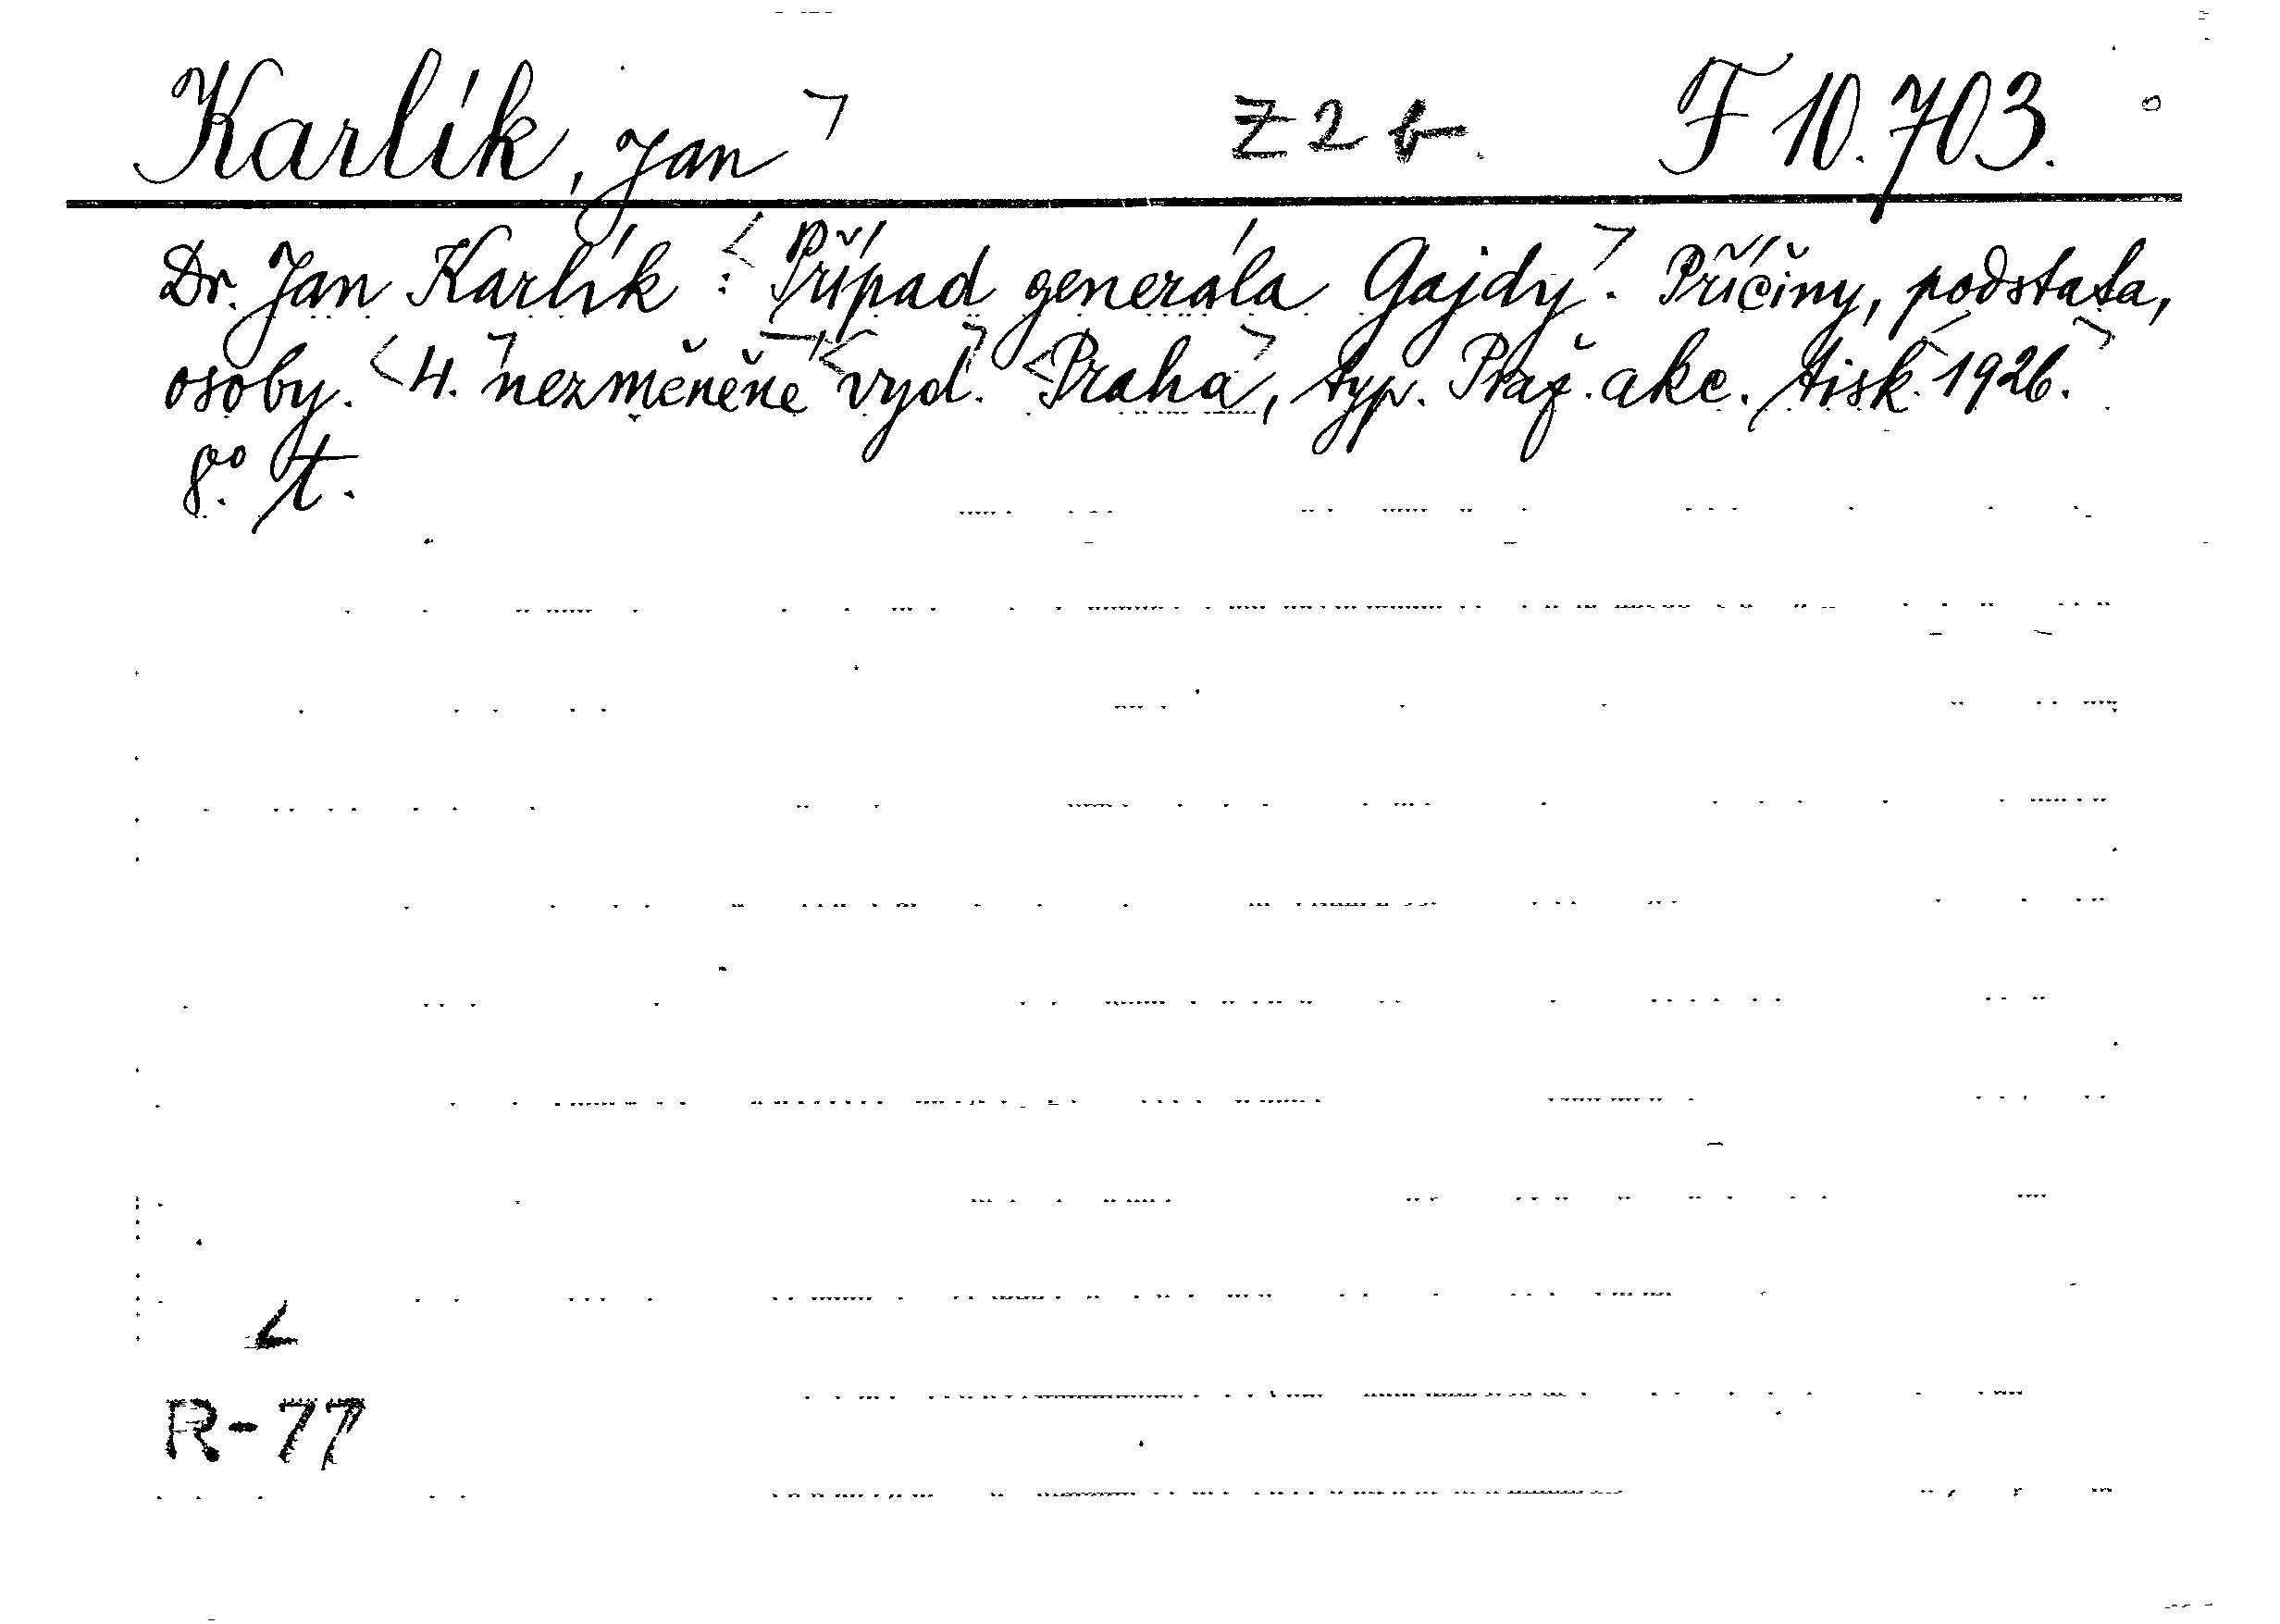 Karlík, Jan Z 2 b. F 10.703.
Dr. Jan Karlík: Případ generála Gajdy. Příčiny, podstata,
osoby. 4. nezměněné vyd. Praha, typ. Praž. akc. tisk. 1926.
8° t.
R-77